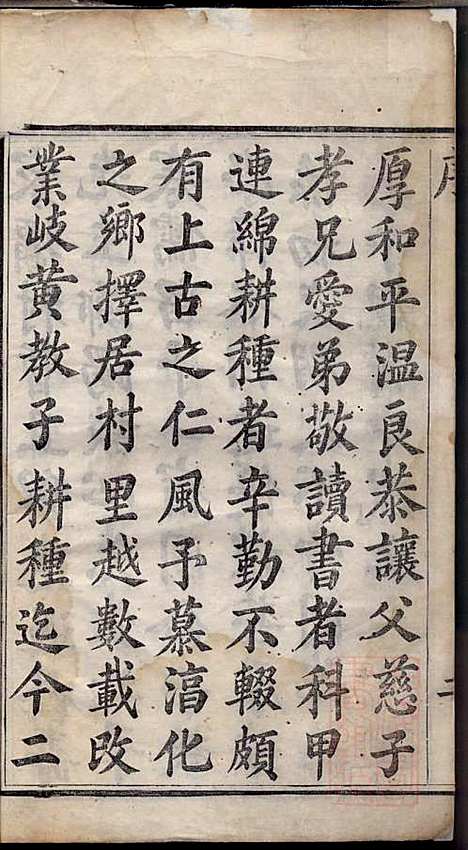 序
厚和平溫良恭讓父慈子
孝兄愛弟敬讀書者科甲
連綿耕種者辛勤不輟頗
有上古之仁風予慕淳化
之鄉擇居村里越數載改
業岐黃教子耕種迄今二